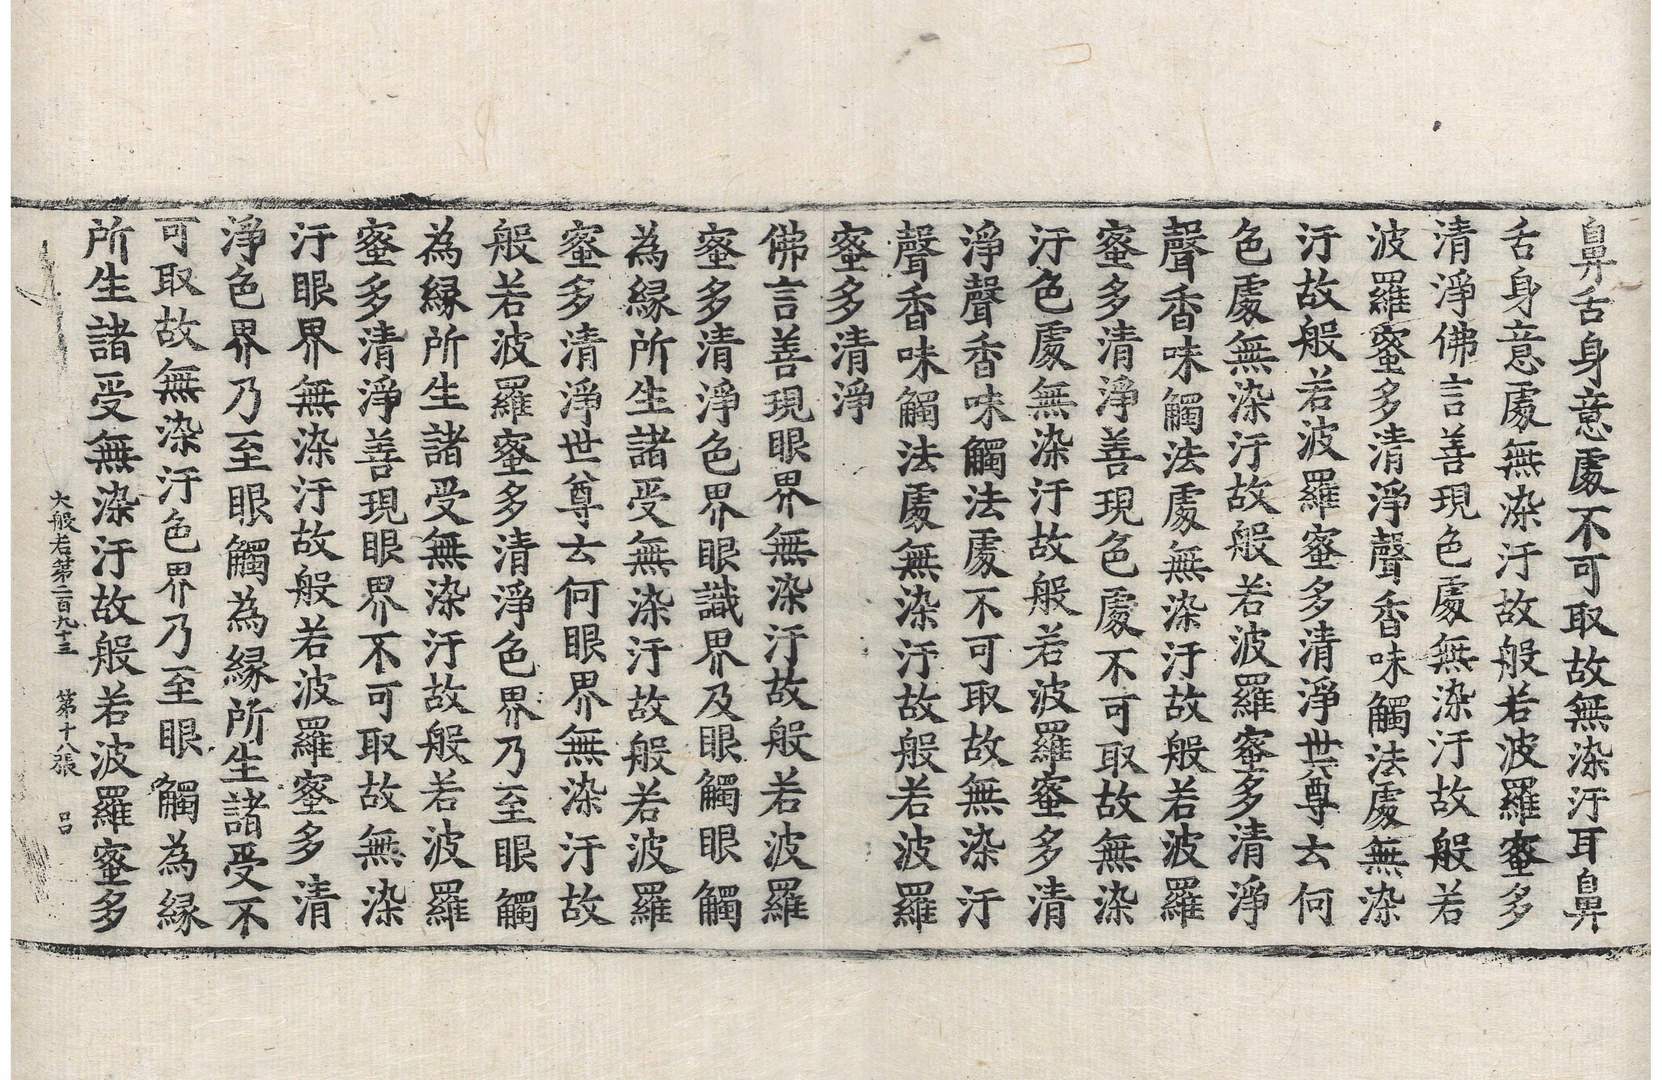 鼻舌身意處不可取故無染汙耳鼻
舌身意處無染汙故般若波羅蜜多
清淨佛言善現色處無染汙故般若
波羅蜜多清淨聲香味觸法處無染
汙故般若波羅蜜多清淨世尊云何
色處無染汙故般若波羅蜜多清淨
聲香味觸法處無染汙故般若波羅
蜜多清淨善現色處不可取故無染
汙色處無染汙故般若波羅蜜多清
淨聲香味觸法處不可取故無染汙
聲香味觸法處無染汙故般若波羅
蜜多清淨
佛言善現眼界無染汙故般若波羅
蜜多清淨色界眼識界及眼觸眼觸
為緣所生諸受無染汙故般若波羅
蜜多清淨世尊云何眼界無染汙故
般若波羅蜜多清淨色界乃至眼觸
為緣所生諸受無染汙故般若波羅
蜜多清淨善現眼界不可取故無染
汙眼界無染汙故般若波羅蜜多清
淨色界乃至眼觸為緣所生諸受不
可取故無染汙色界乃至眼觸為緣
所生諸受無染汙故般若波羅蜜多
大般若第二百九十三 第十八張 呂